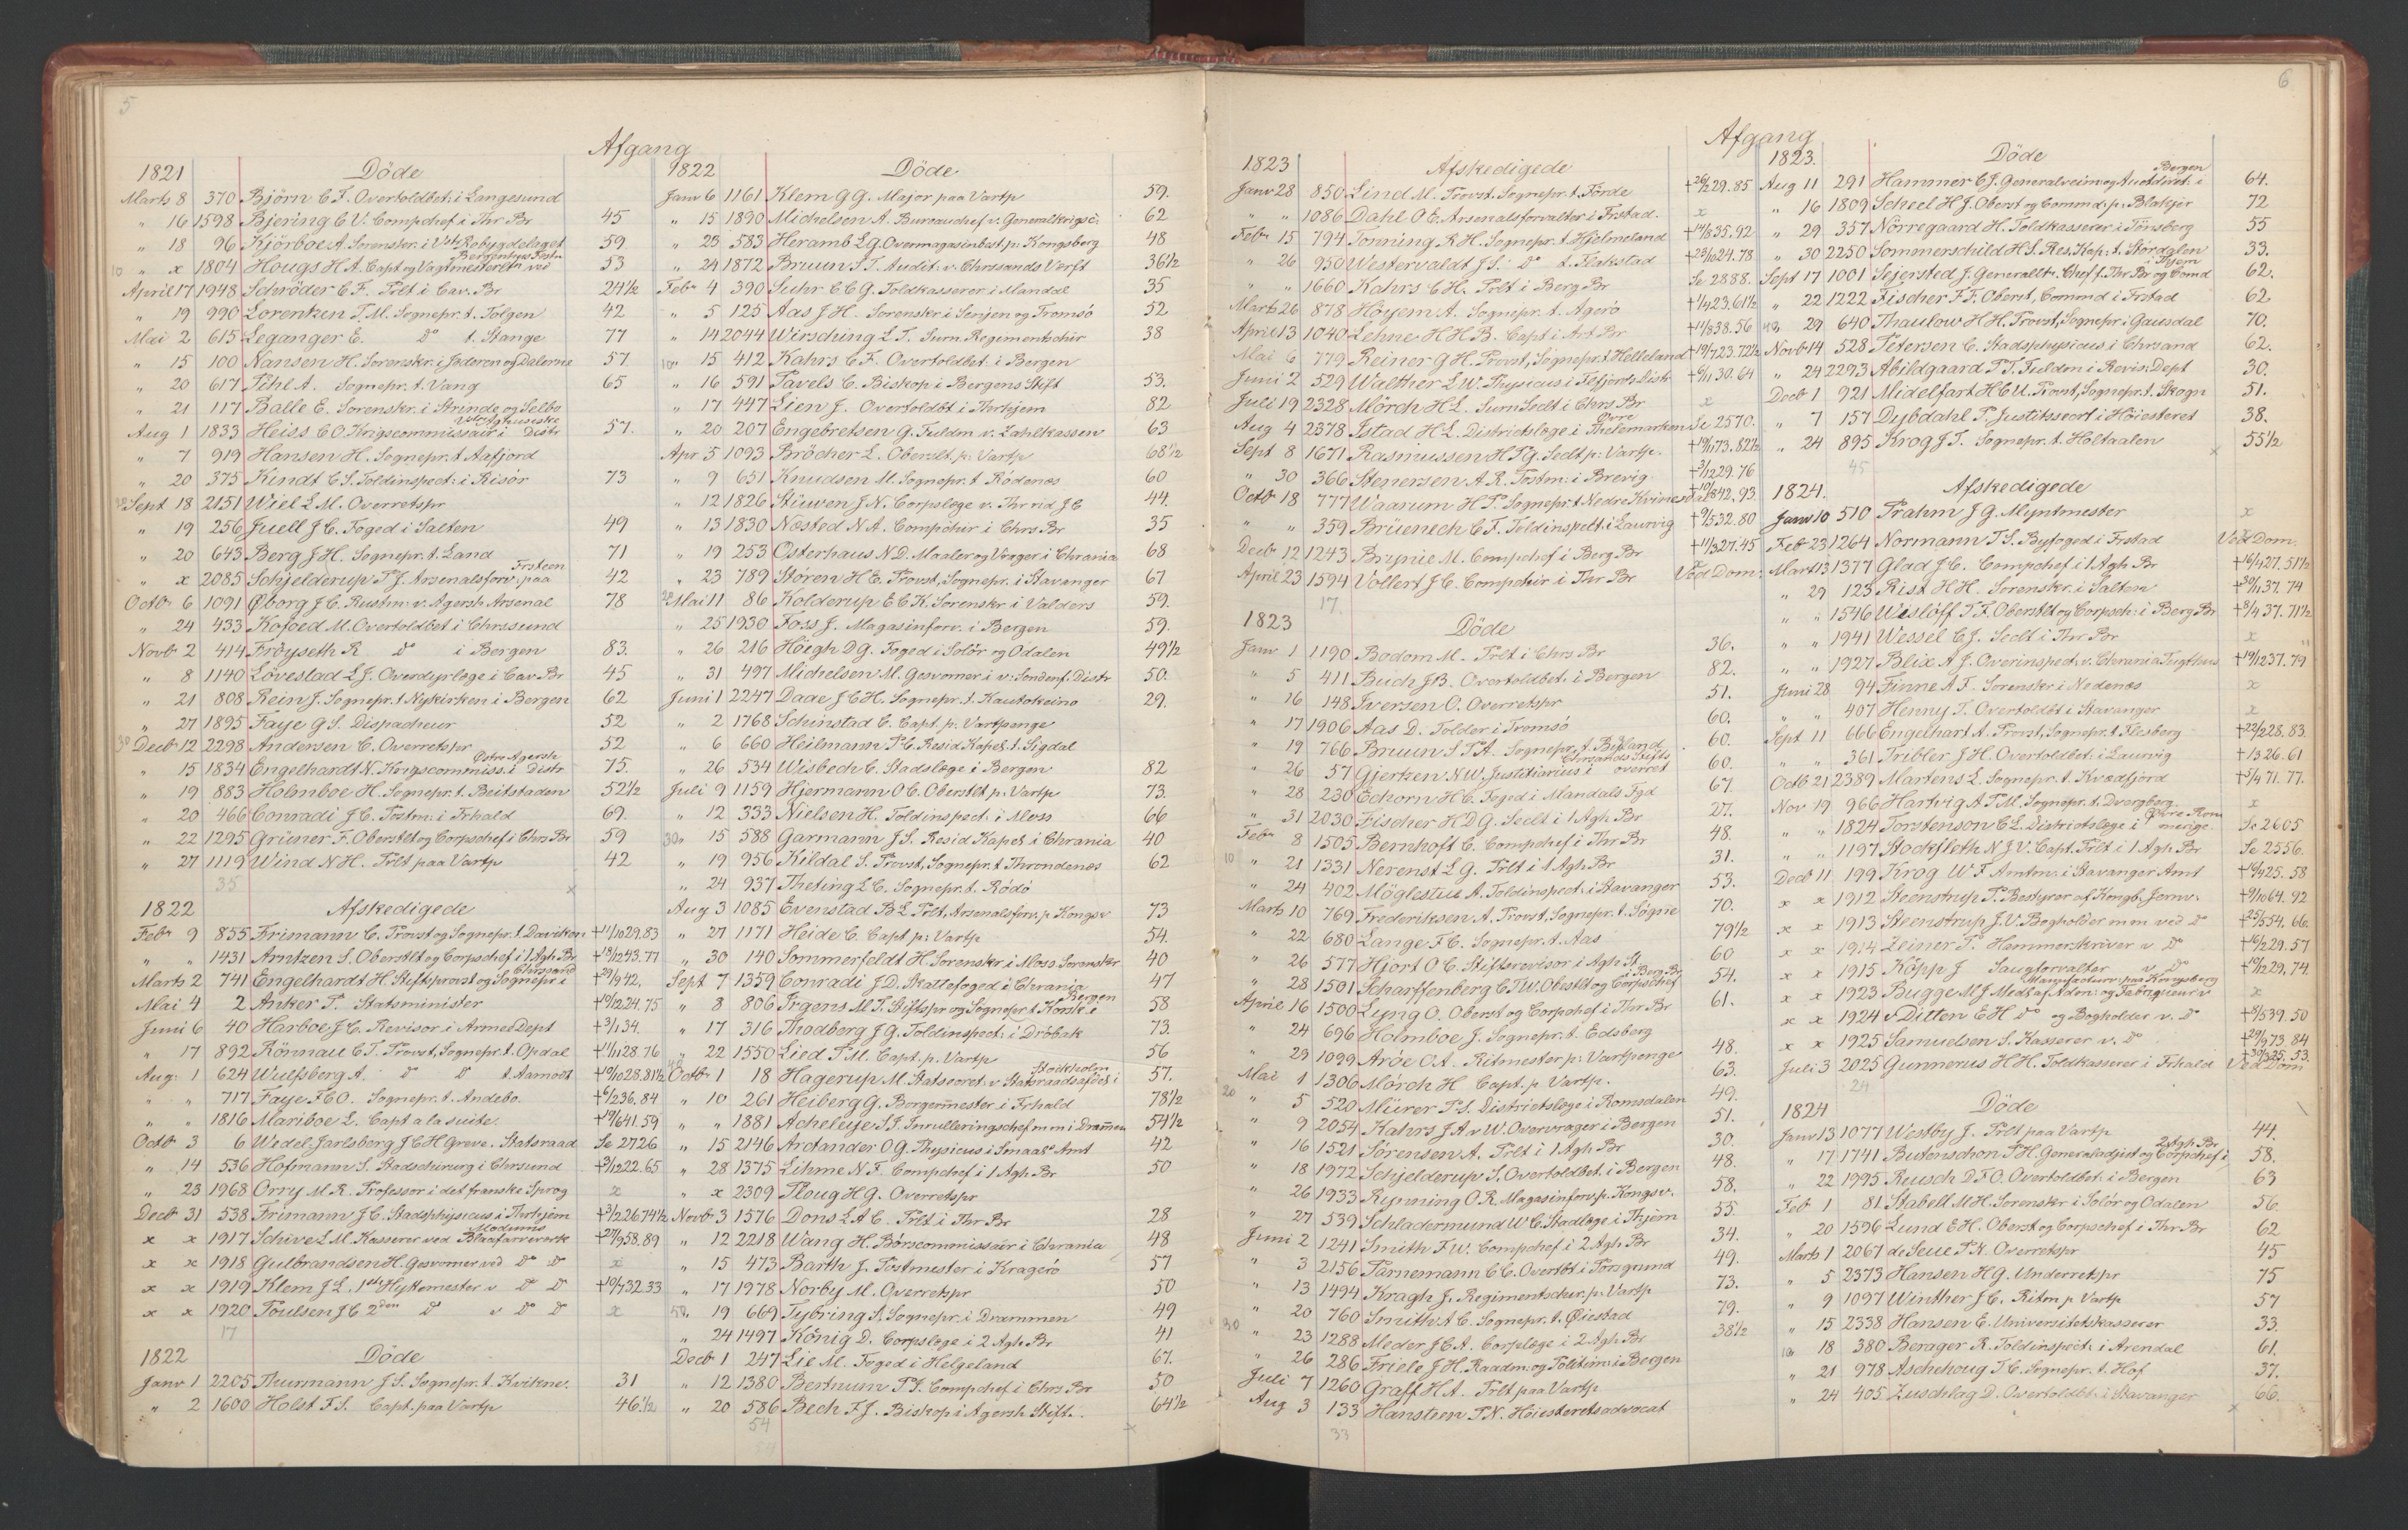 5
Afgang
1821 Döde
Marts 8 370 Björn C F. Overtoldbet: i Langesund
" 16 1598 Bjering C V. Compchef i Thr Br 45
" 18 96 Kjörboe A. Sorenskr. i Vstr Robygdelaget 59.
10 " x 1804 Hougs H A. Capt og Vagtmesterltn ved Bergenhus Festn 53
April 17 1948 Schröder C F. Prlt i Cav. Br 24½
" 19 990 Lorentzen T. M. Sognepr. t. Tolgen 42
Mai 2 615 Leganger E. Do t. Stange 77
" 15 100 Nansen H. Sorenskr. i Jæderen og Dalerne 57.
" 20 617 Pihl A. Sognepr. t. Vang 65
" 21 117 Balle E. Sorenskr. i Strinde og Selbo
Aug 1 1833 Heiss C O. Krigscommissair i Vstr Aghusiske Distr 57.
" 7 919 Hansen H. Sognepr. t. Aafjord
" 20 375 Kindt C S. Toldinspect: i Risör 73
20 Sept 18 2151 Wiel L M. Overretspr
" 19 256 Juell J C. Foged i Salten 49
" 20 643 Berg J H. Sognepr. t. Land 71
" x 2085 Schjelderup P J. Arsenalsforv. paa Frsteen 42
Octbr 6 1091 Øborg J C. Rustm: v. Agersh Arsenal 78
" 24 433 Kofoed M. Overtoldbet i Chrssund
Novbr 2 414 Fröyseth R Do i Bergen 83.
" 8 1140 Lövestad L J. Overdyrlæge i Cav Br 45
" 21 808 Rein J. Sognepr. t Nykirken i Bergen 62
" 27 1895 Faye G S. Dispacheur 52
30 Decbr 12 2298 Andersen C. Overretspr 52
" 15 1834 Engelhardt N. Krigscommiss. i Østre Agersh Distr 75.
" 19 883 Holmboe H. Sognepr. t. Beitstaden 52½
" 20 466 Conradi J C. Postm: i Frhald 69.
" 22 1295 Grüner F. Oberstlt og Corpschef i Chrs Br 59
" 27 1119 Wind N H. Prlt paa Vartp 42
35
1822 Afskedigede
Febr 9 855 Frimann C. Provst og Sognepr. t. Daviken +11/10 29.83
" " 1431 Arntzen S. Oberstlt og Corpschef i 1 Agh Br +18/12 43.77
Marts 2 741 Engelhardt H. Stiftsprovst og Sognepr i Chrssand +29/9 42.
Mai 4 2 Anker P. Statsminister +10/12 24.75
Juni 6 40 Harboe J C. Revisor i Armee Dept +3/1 34.
" 17 892 Rönnau C T. Provst, Sognepr. t. Opdal +11/11 28.76
Aug: 1 624 Wulfsberg A. Do Do t. Aamodt +10/10 28.81½
" " 717 Faye F C O. Sognepr. t. Andebo. +6/2 36.84
" " 1816 Mariboe L. Capt a la suite. +19/6 41.59
Octbr 3 6 Wedel Jarlsberg J C H Greve. Statsraad Se 2726
" 14 536 Hofmann S. Stadschirurg i Chrsund +3/12 22.65
" 23 1968 Orry M R. Professor i det franske Sprog x
Decbr 31 538 Frimann J C. Stadsphysicus i Thrhjem +3/2 26 74½
x x 1917 Schive L M. Kasserer ved Modums Blaafarveverk +27/9 58.89
x x 1918 Gulbrandsen H. Gesvorner ved Do Do x
x x 1919 Klem J L. 1ste Hyttemester v Do Do +10/7 32.33
x x 1920 Poulsen J C 2den Do v Do Do x
17
1822 Döde
Janvr 1 2205 Thurmann J S. Sognepr. t. Kvikne. 31
" 2 1600 Holst F S. Capt. paa Vartp 46.½
1822 Döde
Janvr 6 1161 Klem G G. Major paa Vartp 59.
" 15 1890 Michelsen A. Bureauchef v. Generalkrigsc: 62
" 23 583 Heramb L G. Overmagasinbest p: Kongsberg 48
" 24 1872 Bruun P T. Audit: v. Chrssands Verft 36½
Febr 4 390 Suhr C C G. Toldkasserer i Mandal 35
" 5 125 Aas J H. Sorenskr i Senjen og Tromsö 52
" 14 2044 Wirsching L T. Surn. Regimentschir 38
10 " 15 412 Kahrs C F. Overtoldbet. i Bergen
" 16 591 Pavels C. Biskop i Bergens Stift 53.
" 17 447 Lien J. Overtoldbt i Thrhjem 82
" 20 207 Engebretsen G. Fuldm v. Zahlkassen 63
Apr 5 1093 Bröcher L. Oberstlt p: Vartp 68½
" 9 651 Knudsen M. Sognepr. t Rödenæs 60
" 12 1826 Stüwen J N. Corpslæge v. Thr rid J C 44.
" 13 1830 Næsted N A. Compchir i Chrs Br 35
" 19 253 Osterhaus N D. Maaler og Vrager i Chrania 68
" 23 789 Stören H E. Provst, Sognepr. i Stavanger 67
20 Mai 11 86 Kolderup E C K. Sorenskr i Valders 59.
" 25 1930 Foss J. Magasinforv. i Bergen 59.
" 26 216 Höegh D G. Foged i Solör og Odalen 49½
" 31 497 Michelsen M. Gesvorner i v: Söndenf: Distr 50.
Juni 1 2247 Daae J C H. Sognepr. t. Kautokeino 29.
" 2 1768 Schinstad C. Capt. p: Vartpenge
" 6 660 Heilmann P C. Resid Kapel. t. Sigdal
" 26 534 Wisbech C. Stadslæge i Bergen 82
Juli 9 1159 Hjermann O C. Oberstlt p: Vartp 73
" 12 333 Nielsen H. Toldinspect. i Moss 66
30 " 15 588 Garmann J S. Resid Kapel. i Chrania 40
" 19 956 Kildal S. Provst, Sognepr. t Throndenæs 62
" 24 937 Theting L C. Sognepr. t. Rödö
Aug 3 1085 Evenstad B L. Prlt, Arsenalsforv. p. Kongsv 73
" 27 1171 Heide C. Capt p: Vartp 54.
" 30 140 Sommerfeldt H. Sorenskr. i Moss Sorenskr. 40
Sept 7 1359 Conradi J D. Skattefoged i Chrania 47
" 8 806 Irgens M T. Stiftspr og Sognepr t. Korsk. i Bergen 58
" 17 316 Thadberg J G. Toldinspect: i Dröbak 73.
" 22 1550 Lied P M. Capt. p. Vartp 56
40 Octbr 1 18 Hagerup M. Statsecret. v Statsraadsafdel i Stockholm 57.
" 10 261 Heiberg G. Borgermester i Frhald 78½
" " 1881 Acheleye S S. Inrulleringschef m m i Drammen 54½
" 15 2146 Arctander O G. Physicus i Smaale Amt 42
" 28 1375 Lihme N F. Compchef i 1 Agh Br 50
" x 2309 Ploug H G. Overretspr
Novbr 3 1576 Dons L A C. Prlt i Thr Br 28
" 12 2218 Wang H. Börscommissair i Chrania 48
" 15 473 Barth J. Postmester i Kragerö 57
" 17 1978 Norby M. Overretspr 50
50 " 19 669 Tybring S. Sognepr. i Drammen 49
" 24 1497 König D. Corpslæge i 2 Agh Br 41
Decbr 1 247 Lie M. Foged i Helgeland 67.
" 12 1380 Bernum P F. Compchef i Chrs Br 50
" 20 586 Bech F J. Biskop i Agersh Stift. 64½
54
6
Afgang
1823 Afskedigede
Janvr 28 850 Lind M. Provst. Sognepr. t. Förde +26/2 29.85
" " 1086 Dahl O E. Arsenalsforvalter i Frstad. x
Febr 15 794 Tonning R H. Sognepr. t Hjelmeland +14/8 35.92
" 26 950 Westervaldt J S. Do t. Flakstad +23/10 24.78
" " 1660 Kahrs C H. Prlt i Berg Br Se 2888.
Marts 26 878 Höyem A. Sognepr. t. Agerö +1/4 23.61½
April 13 1040 Lehne H H B. Capt i Art Br +11/8 38.56
Mai 6 779 Reiner G H. Provst, Sognepr. t Helleland +19/7 23.72½
Juni 2 529 Walther L W. Physicus i Flefjords Distr +6/11 30.64
Juli 19 2328 Mörch H L. Surn Seclt i Chrs Br x
Aug 4 2378 Istad H L. Districtslæge i Øvre Thelemarken Se 2570.
Sept 8 1671 Rasmussen H P G. Seclt p: Vartp. +19/11 73.82½
" 30 366 Stenersen A. R. Postm: i Brevig +3/12 29.76
Octbr 18 777 Waarum H P. Sognepr. t Nedre Kvinesdal +10/8 42.93.
" " 359 Brüenech C F. Toldinspect. i Laurvig +9/5 32.80
Decbr 12 1243 Brynie M. Compchef i Berg Br +11/3 27.45
April 23 1594 Vollert J C. Compchir i Thr Br Ved Dom.
17.
1823 Döde
Janv 1 1190 Bodom M. Prlt i Chrs Br 36.
" 5 411 Buch J B. Overtoldbet. i Bergen 82.
" 16 148 Iversen O. Overretspr 51.
" 17 1906 Aas D. Tolder i Tromsö 60.
" 19 766 Bruun S T A. Sognepr. t. Biriland 60.
" 26 57 Gjertzen N W. Justitiarius i Chrssands Stifts overret 60.
" 28 230 Echorn H C. Foged i Mandals Fgd 67.
" 31 2030 Fischer H D G. Seclt i 1 Agh Br 27.
Febr 8 1505 Bernhoft C. Compchef i Thr Br 48.
10 " 21 1331 Nerenst L G. Prlt i 1 Agh Br 31.
" 24 402 Möglestue A. Toldinspect. i Stavanger 53.
Marts 10 769 Frederiksen A. Provst, Sognepr. t. Sögne 70.
" 22 680 Lange F C. Sognepr. t. Aas 79½
" 26 577 Hjort O C. Stiftsrevisor i Agh St. 60
" 28 1501 Scharffenberg C T W. Obestlt og Corpschef i Berg Br 54.
April 16 1500 Lyng O. Oberst og Corpschef i Thr Br 61.
" 24 696 Holmboe J. Sognepr. t. Edsberg
" 29 1099 Aröe O A. Ritmester p: Vartpenge 48.
Mai 1 1306 Mörch H Capt. p. Vartp. 63.
20 " 5 520 Mürer P S. Districtslæge i Romsdalen 49.
" 9 2054 Kahrs J A v W. Overvrager i Bergen 51.
" 16 1521 Sörensen A. Prlt i 1 Agh Br 30.
" 18 1972 Schjelderup S. Overtoldbet. i Bergen 48.
" 26 1933 Rynning O. R. Magasinforv. p. Kongsv. 58.
" 27 539 Schladermund W C. Stadlæge i Thjem 55
Juni 2 1241 Smith F W. Compchef i 2 Agh Br 34.
" 3 2156 Parnemann C C. Overtbt i Porsgrund 49.
" 13 1494 Kragh J. Regimentschir. p. Vartp 73.
" 20 760 Smith A C. Sognepr. t. Øiestad 79.
30 " 23 1288 Meder J C A. Corpslæge i 2 Agh Br 38½
" 26 286 Friele J H. Raadm: og Politim: i Bergen
Juli 7 1260 Graff H A. Prlt paa Vartp
Aug 3 133 Hansteen P N. Höiesteretsadvocat
33
1823. Döde
Aug 11 291 Hammer C J. Generalveim og Auctdirect: i Bergen 64.
" 16 1809 Scheel H J. Oberst og Commd: p: Blakjer 72
" 29 357 Nörregaard H. Toldkasserer i Tönsberg 55
" 30 2250 Sommerschild H S. Res. Kap: t. Stordalen 33.
Sept 17 1001 Sejersted J. Generallt. Chef f. Thr Br og Comd i Thjem 62.
" 22 1222 Fischer F F. Oberst, Commd i Frstad 62.
40 " 29 640 Thaulow H H. Provst, Sognepr i Gausdal 70.
Novbr 14 528 Petersen C. Stadsphysicus i Chrsand 62.
" 24 2293 Abildgaard P T. Fuldm i Revis: Dept 30.
Decbr 1 921 Midelfart H C U. Provst, Sognepr. t. Skogn 51.
" 7 157 Dybdahl P. Justitssecrt i Höiesteret 38.
" 24 895 Krog J T. Sognepr. t. Holtaalen 55½
45
1824. Afskedigede
Janvr 10 510 Prahm J G. Myntmester x
Febr 23 1264 Normann P S. Byfoged i Frstad Ved Dom.
Marts 13 1377 Glad J C. Compchef i 1 Agh Br +16/4 27.51½
" 29 123 Rist H H. Sorenskr. i Salten +30/11 37.74
" " 1546 Wesløff P F. Oberstlt og Corpsch: i Berg Br +3/4 37.71½
" " 1941 Wessel C J. Seclt i Thr Br x
" " 1927 Blix A J. Overinspect. v. Chrania Tugthus +19/12 37.79
Juni 28 94 Finne A F. Sorenskr. i Nedenæs x
" " 407 Henny T. Overtoldbt i Stavanger x
Sept 11 666 Engelhart A. Provst, Sognepr. t. Flesberg +22/2 28.83.
" " 361 Tribler J H. Overtoldbet. i Laurvig +13 26.61
Octbr 21 2389 Martens L. Sognepr. t. Kvædfjord +5/4 71.77.
Nov 19 966 Hartvig A T M. Sognepr. t. Dverberg x
" " 1824 Torstenson C L. Districtslæge i Øvre Romerige Se 2605
" " 1197 Stockfleth N J V. Capt. Prlt i 1 Agh Br Se 2556.
Decbr 11 199 Krog W F. Amtm: i Stavanger Amt +16/4 25.58
x x 1912 Steenstrup P. Bestyrer af Kongb. Jernv. +9/10 64.92
x x 1913 Steenstrup J. V. Bogholder m m ved Do +25/5 54.66.
x x 1914 Leiner P. Hammerskriver v Do +16/2 29.57
x x 1915 Köpp J Saugforvalter v Do +10/12 29.74.
x x 1923 Bugge M J Medl af Adm: og Fabrigueur v Manufacturv. paa Kongsberg x
x x 1924 v Ditten E H Do og Bogholder v. Do +9/5 39.50
x x 1925 Samuelsen S. Kasserer v. Do +29/9 73.84
Juli 3 2025 Gunnerus H H. Toldkasserer i Frhald +30/5 25.53. Ved Dom
24
1824 Döde
Janvr 13 1077 Westby J. Prlt paa Vartp 44.
" 17 1741 Butenschon P H. Generaladjut og Corpschef i 2 Agh Br 58.
" 22 1995 Reusch D F O. Overtoldbet. i Bergen 63
Feb 1 81 Stabell M H. Sorenskr i Solör og Odalen 56.
" 20 1596 Lund E H. Oberst og Corpschef i Thr Br 62
Marts 1 2067 de Seue P N. Overretspr 45
" 5 2373 Hansen H G. Underretspr 75
" 9 1097 Winther J C. Ritm p Vartp 57
" 15 2338 Hansen C. Universitetskasserer 33.
10 " 18 380 Berager R. Toldinspect: i Arendal 61.
" 21 978 Aschehoug T C. Sognepr. t. Hof 37.
" 24 405 Zuschlag D. Overtoldbt. i Stavanger 66.